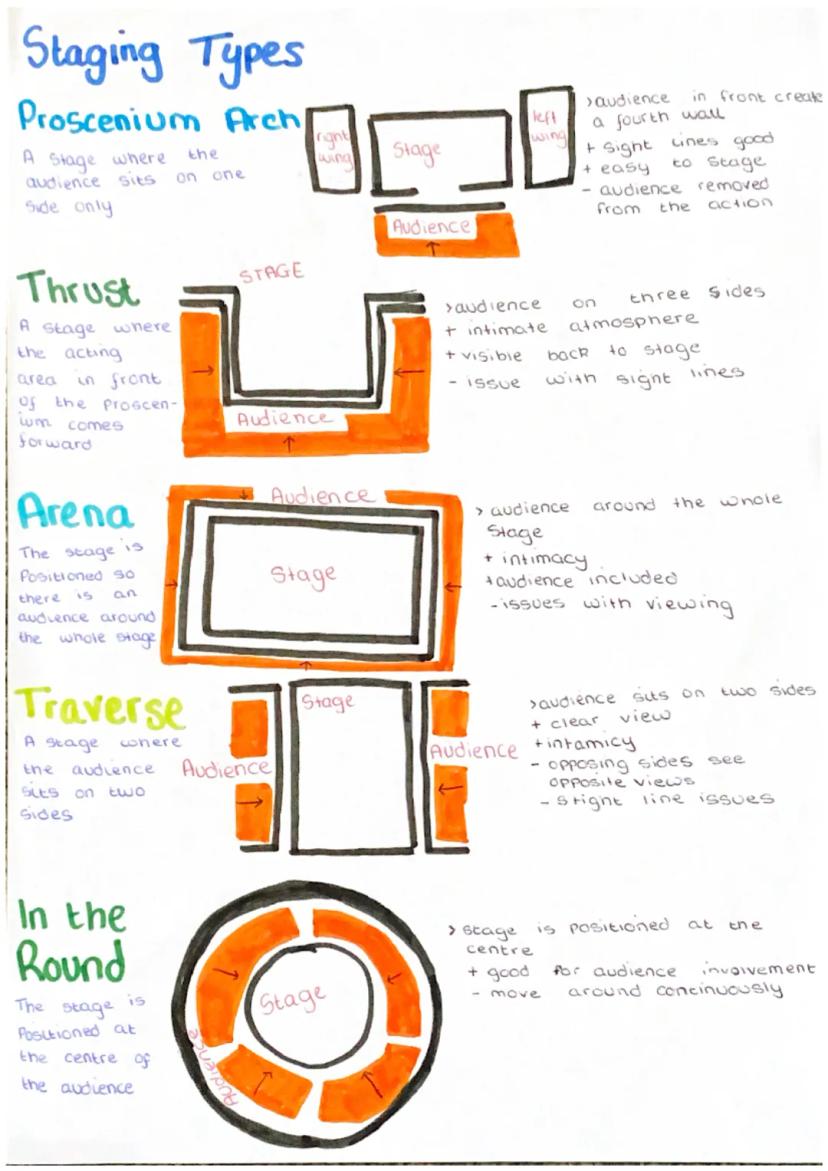 Staging Types
Proscenium Arch
A stage where the
audience sits on one
side only
right
wing
Stage
left
wing
Audience
>audience in front create
a fourth wall
+ sight lines good
+ easy to stage
- audience removed
from the action
Thrust
A stage where
the acting
area in front
of the Proscen-
ium comes
forward
STAGE
Audience
>audience on three sides
+ intimate atmosphere
+ visible back to stage
- issue with sight lines
Arena
The stage is
Positioned so
there is an
audience around
the whole stage
Audience
Stage
> audience around the whole
Stage
+ intimacy
+audience included
-issues with viewing
Traverse
A stage where
the audience
sits on two
sides
Audience
Stage
Audience
>audience sits on two sides
+ clear view
+intamicy
- opposing sides see
opposite views
- stight line issues
In the
Round
The stage is
Positioned at
the centre of
the audience
Stage
Audience
> stage is positioned at the
centre
+ good for audience involvement
- move around continuously